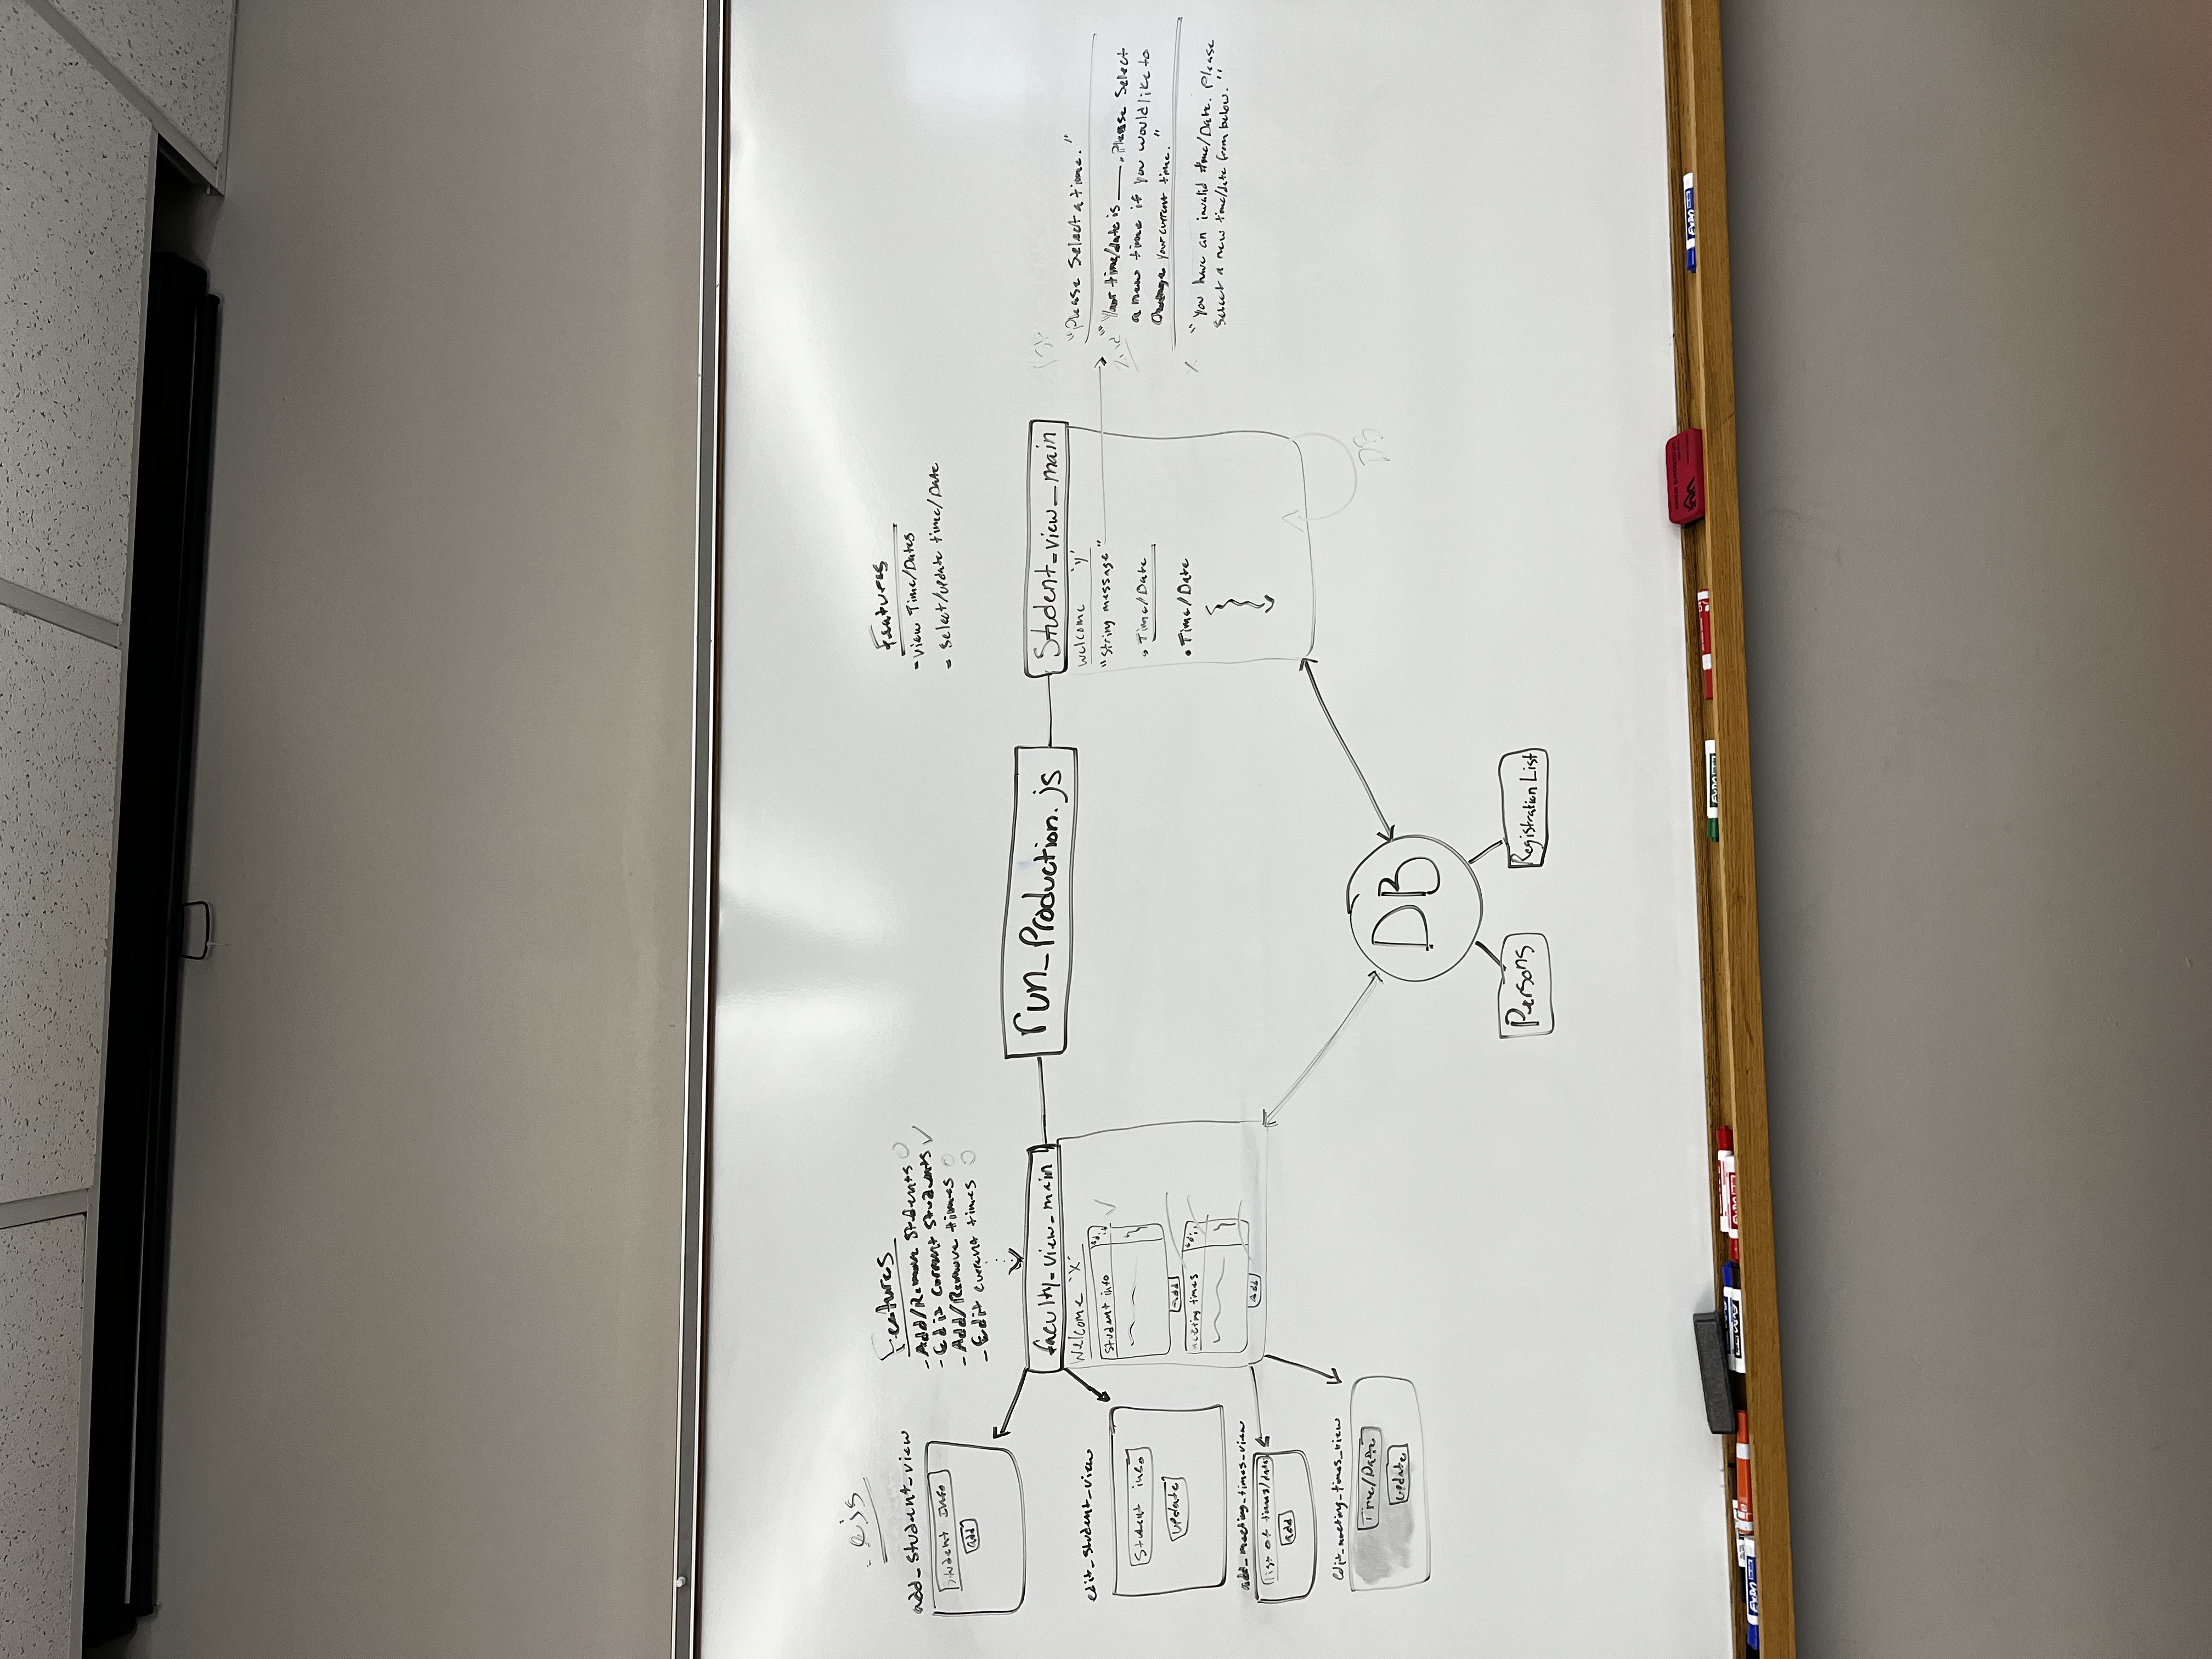 .ejs
add_student_view
Student Info
add
edit_student_view
Student info
update
add_meeting_times_view
list of times/dates
add
edit_meeting_times_view
Time/Date
update
Features
- Add/Remove Students
- Edit Current Students ✓
- Add/Remove times
- Edit current times
faculty_view_main
Welcome 'X'
Student info
Add
meeting times
Add
run_Production.js
DB
Persons
Registration List
Features
- View Time/Dates
- Select/update time/Date
Student_view_main
Welcome 'y'
"String message"
• Time/Date
• Time/Date
DB
1st
"Please Select a time."
2nd
"Your time/date is ____. Please Select
a new time if you would like to
Change your current time."
"You have an invalid time/Date. Please
Select a new time/date from below."
EXPO
EXPO
EXPO